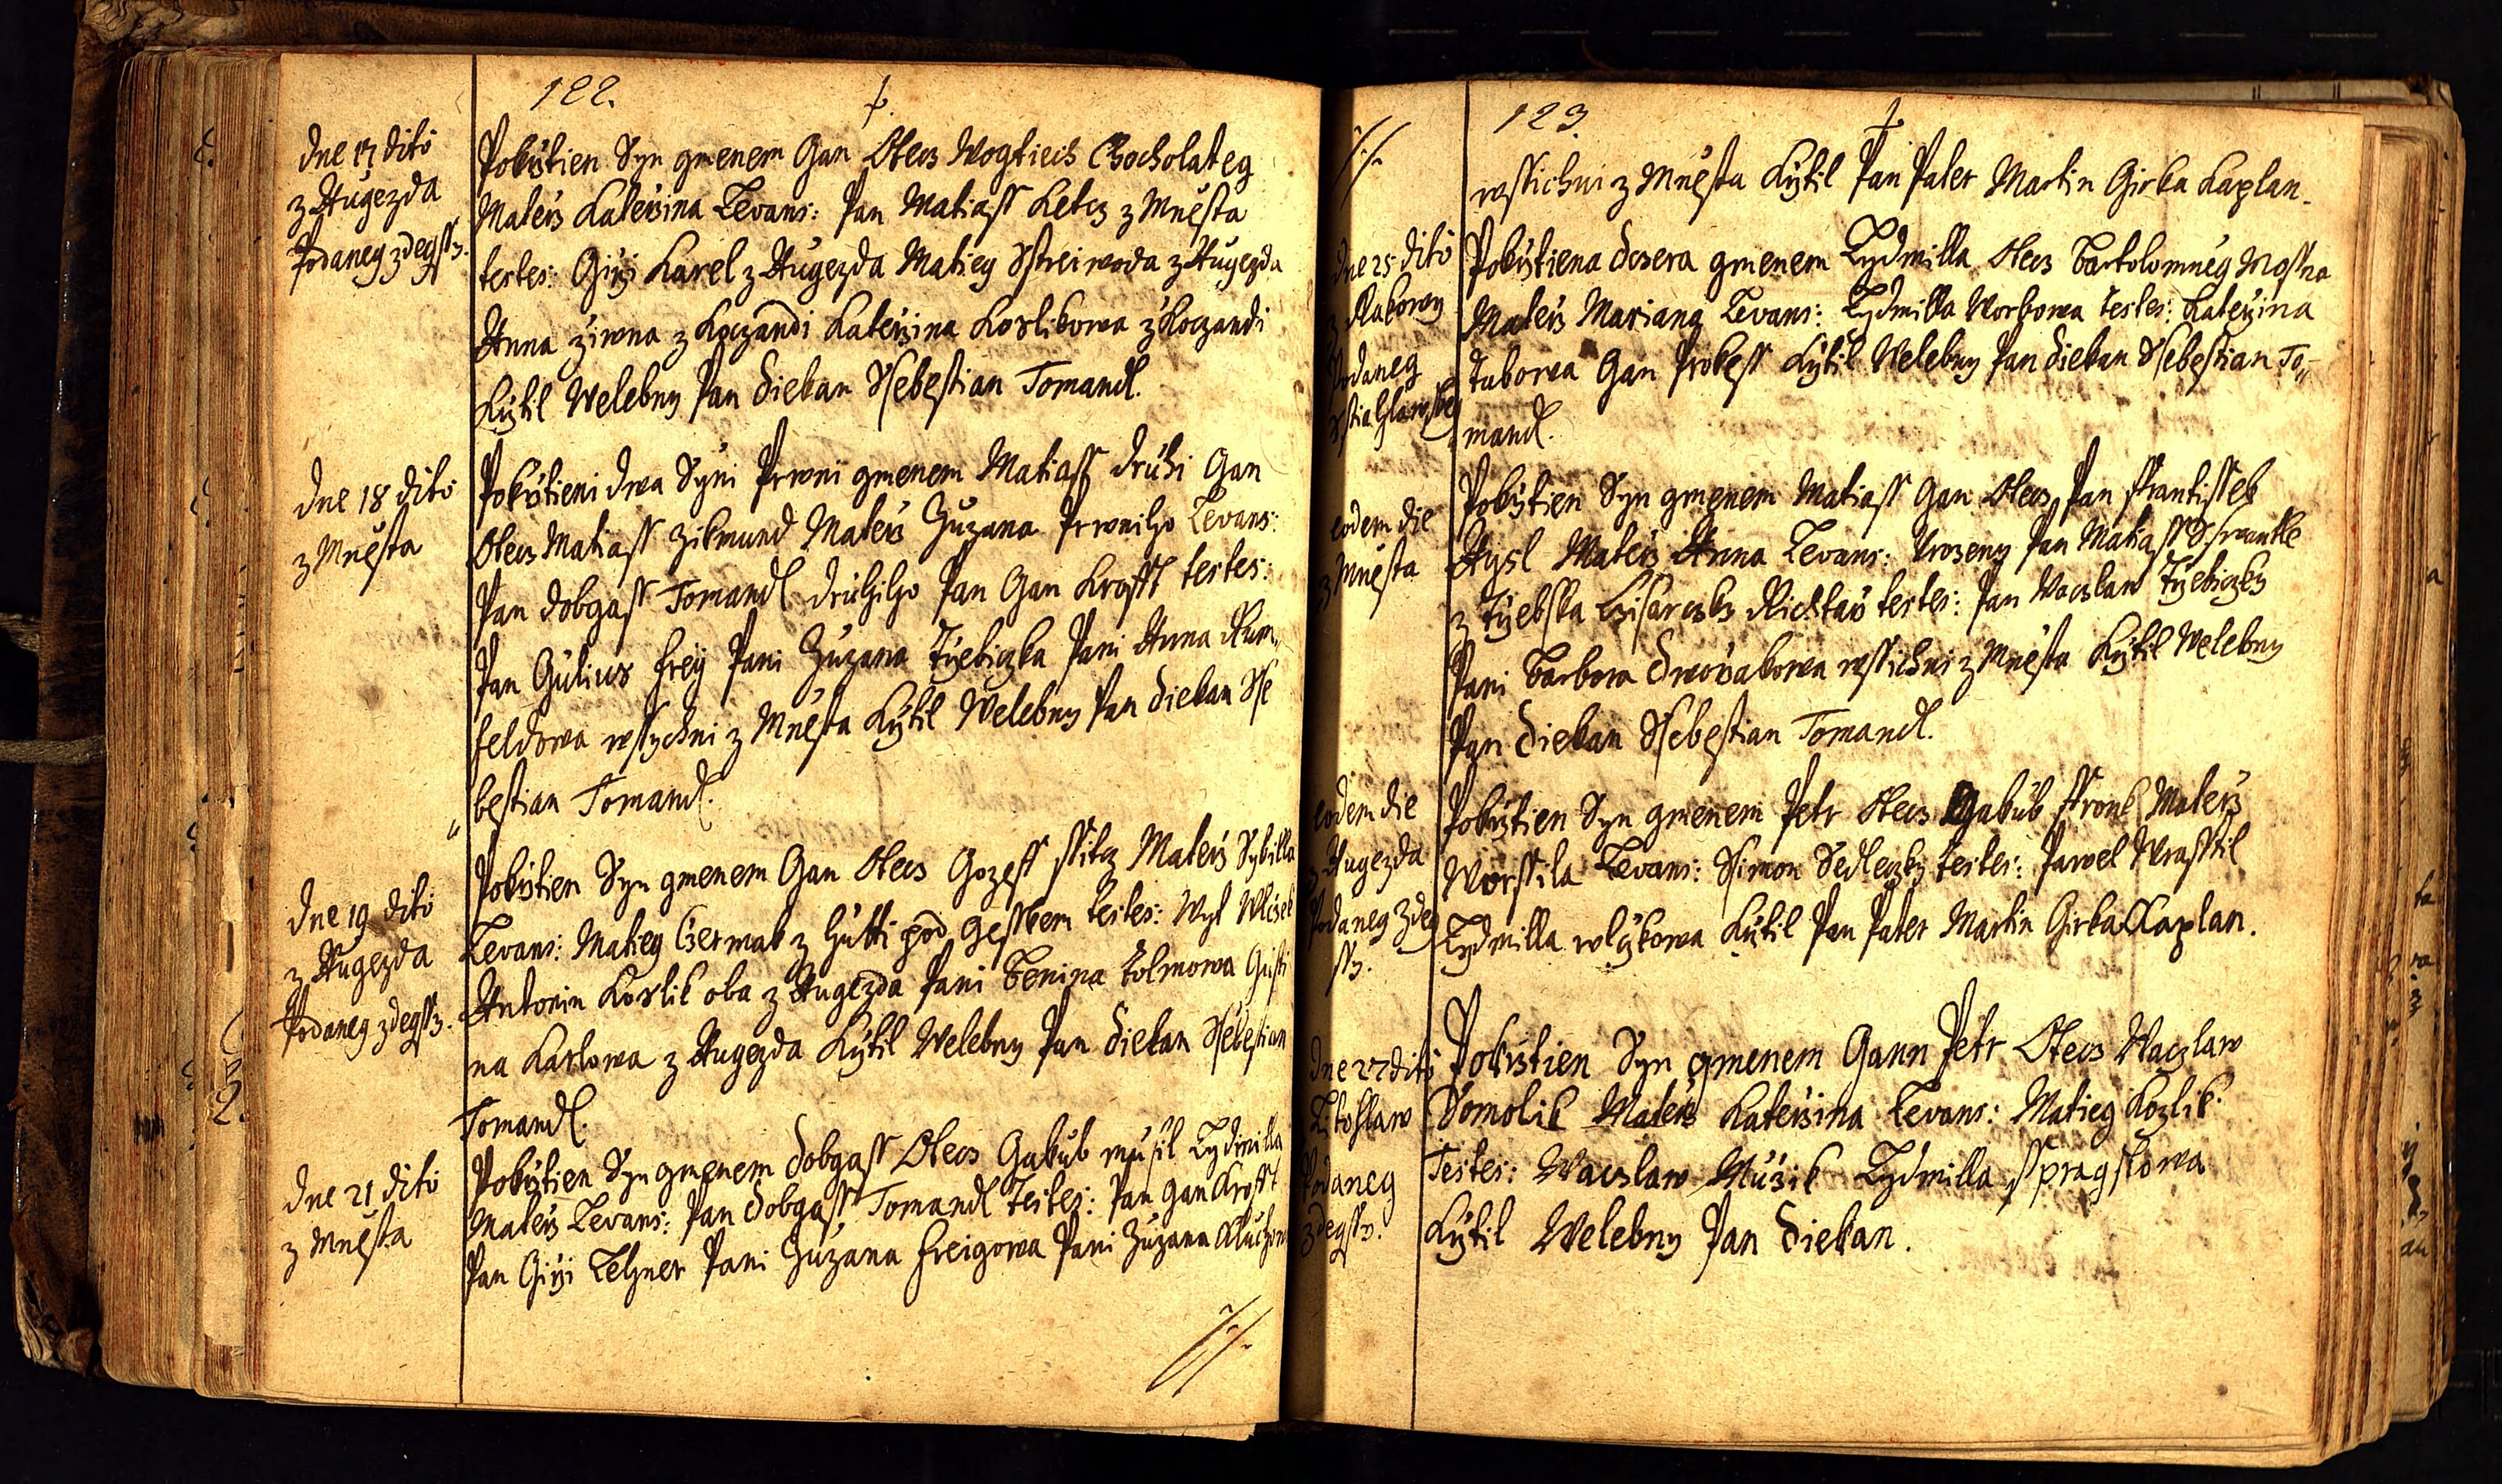 122.
dne 17 dito
z Augezda
Podaneg zdegssz.
Pokrztien Syn gmenem Gan Otecz Wogtiech Chocholateg
Materz Katerzina Levans: Pan Matiass Letcz z Mněsta
testes: Girzi Karel z Augezda Matieg Sstreiwoda z Augezda
Anna ziwna z Koczandi Katerzina Kozlikowa z Koczandi
Krztil Welebny Pan Diekan Ssebestian Tomandl.
dne 18 dito
z Mněsta
Pokrztieni dwa Syni Prwni gmenem Matiass druhi Gan
Otecz Matiass Zikmund Materz Zuzana Prwniho Levans:
Pan dobgass Tomandl druhiho Pan Gan Krofft testes:
Pan Gulius Frey Pani Zuzana Trzebiczka Pani Anna Rum,,
feldowa wssychni z Mněsta Krztil Welebny Pan Diekan Sse
bestian Tomandl.
dne 19 dito
z Augezda
Podaneg zdegssz.
Pokrztien Syn gmenem Gan Otecz Gozeff Materz Sybilla
Levans: Matieg Czermak z Hutti pod Gesskem testes: Wyt Wlczek
Antonin Kozlik oba z Augezda Pani Benina Tolmowa Gusti
na Karlowa z Augezda Krztil Welebny Pan Diekan Ssebestian
Tomandl.
dne 21 dito
z Mněsta
Pokrztien Syn gmenem dobgass Otecz Gakub musil Lydmilla
Materz Levans: Pan dobgass Tomandl testes: Pan Gan Krofft
Pan Girzi Lehner Pani Zuzana Freigowa Pani Zuzana
123.
wssichni z Mněsta Krztil Pan Pater Martin Girka Kaplan.
dne 25 dito
z Rakowy
Podaneg
Pokrztiena dcera gmenem Lydmilla Otecz Bartolomneg Mossna
Materz Mariana Levans: Lydmilla Workowa testes: Katerzina
Taborowa Gan Prokess Krztil Welebny Pan Diekan Ssebestian To,,
mandl.
eodem die
z Mněsta
Pokrztien Syn gmenem Matiass Gan Otecz Pan Frantissek
Hysl Materz Anna Levans: Urozeny Pan Matiass
z Trzebska Czisarzsky Richtarz testes: Pan Waczlaw Trzebiczky
Pani Barbora Dworzakowa wssichni z Mněsta Krztil Welebny
Pan Diekan Ssebestian Tomandl.
eodem die
z Augezda
Podaneg zdeg
ssz.
Pokrztien Syn gmenem Petr Otecz Gakub Fronk Materz
Worssila Levans: Ssimon Sedleczky testes: Pawel Wrasstil
Lydmilla wlczkowa Krztil Pan Pater Martin Girka Kaplan.
dne 27 dito
Litohlaw
Podaneg
zdegssz.
Pokrztien Syn gmenem Gann Petr Otecz Waczlaw
Somolik Materz Katerzina Levans: Matieg Kozlik
Testes: Waczlaw Muzik Lydmilla Spragstowa
Krztil Welebny Pan Diekan.